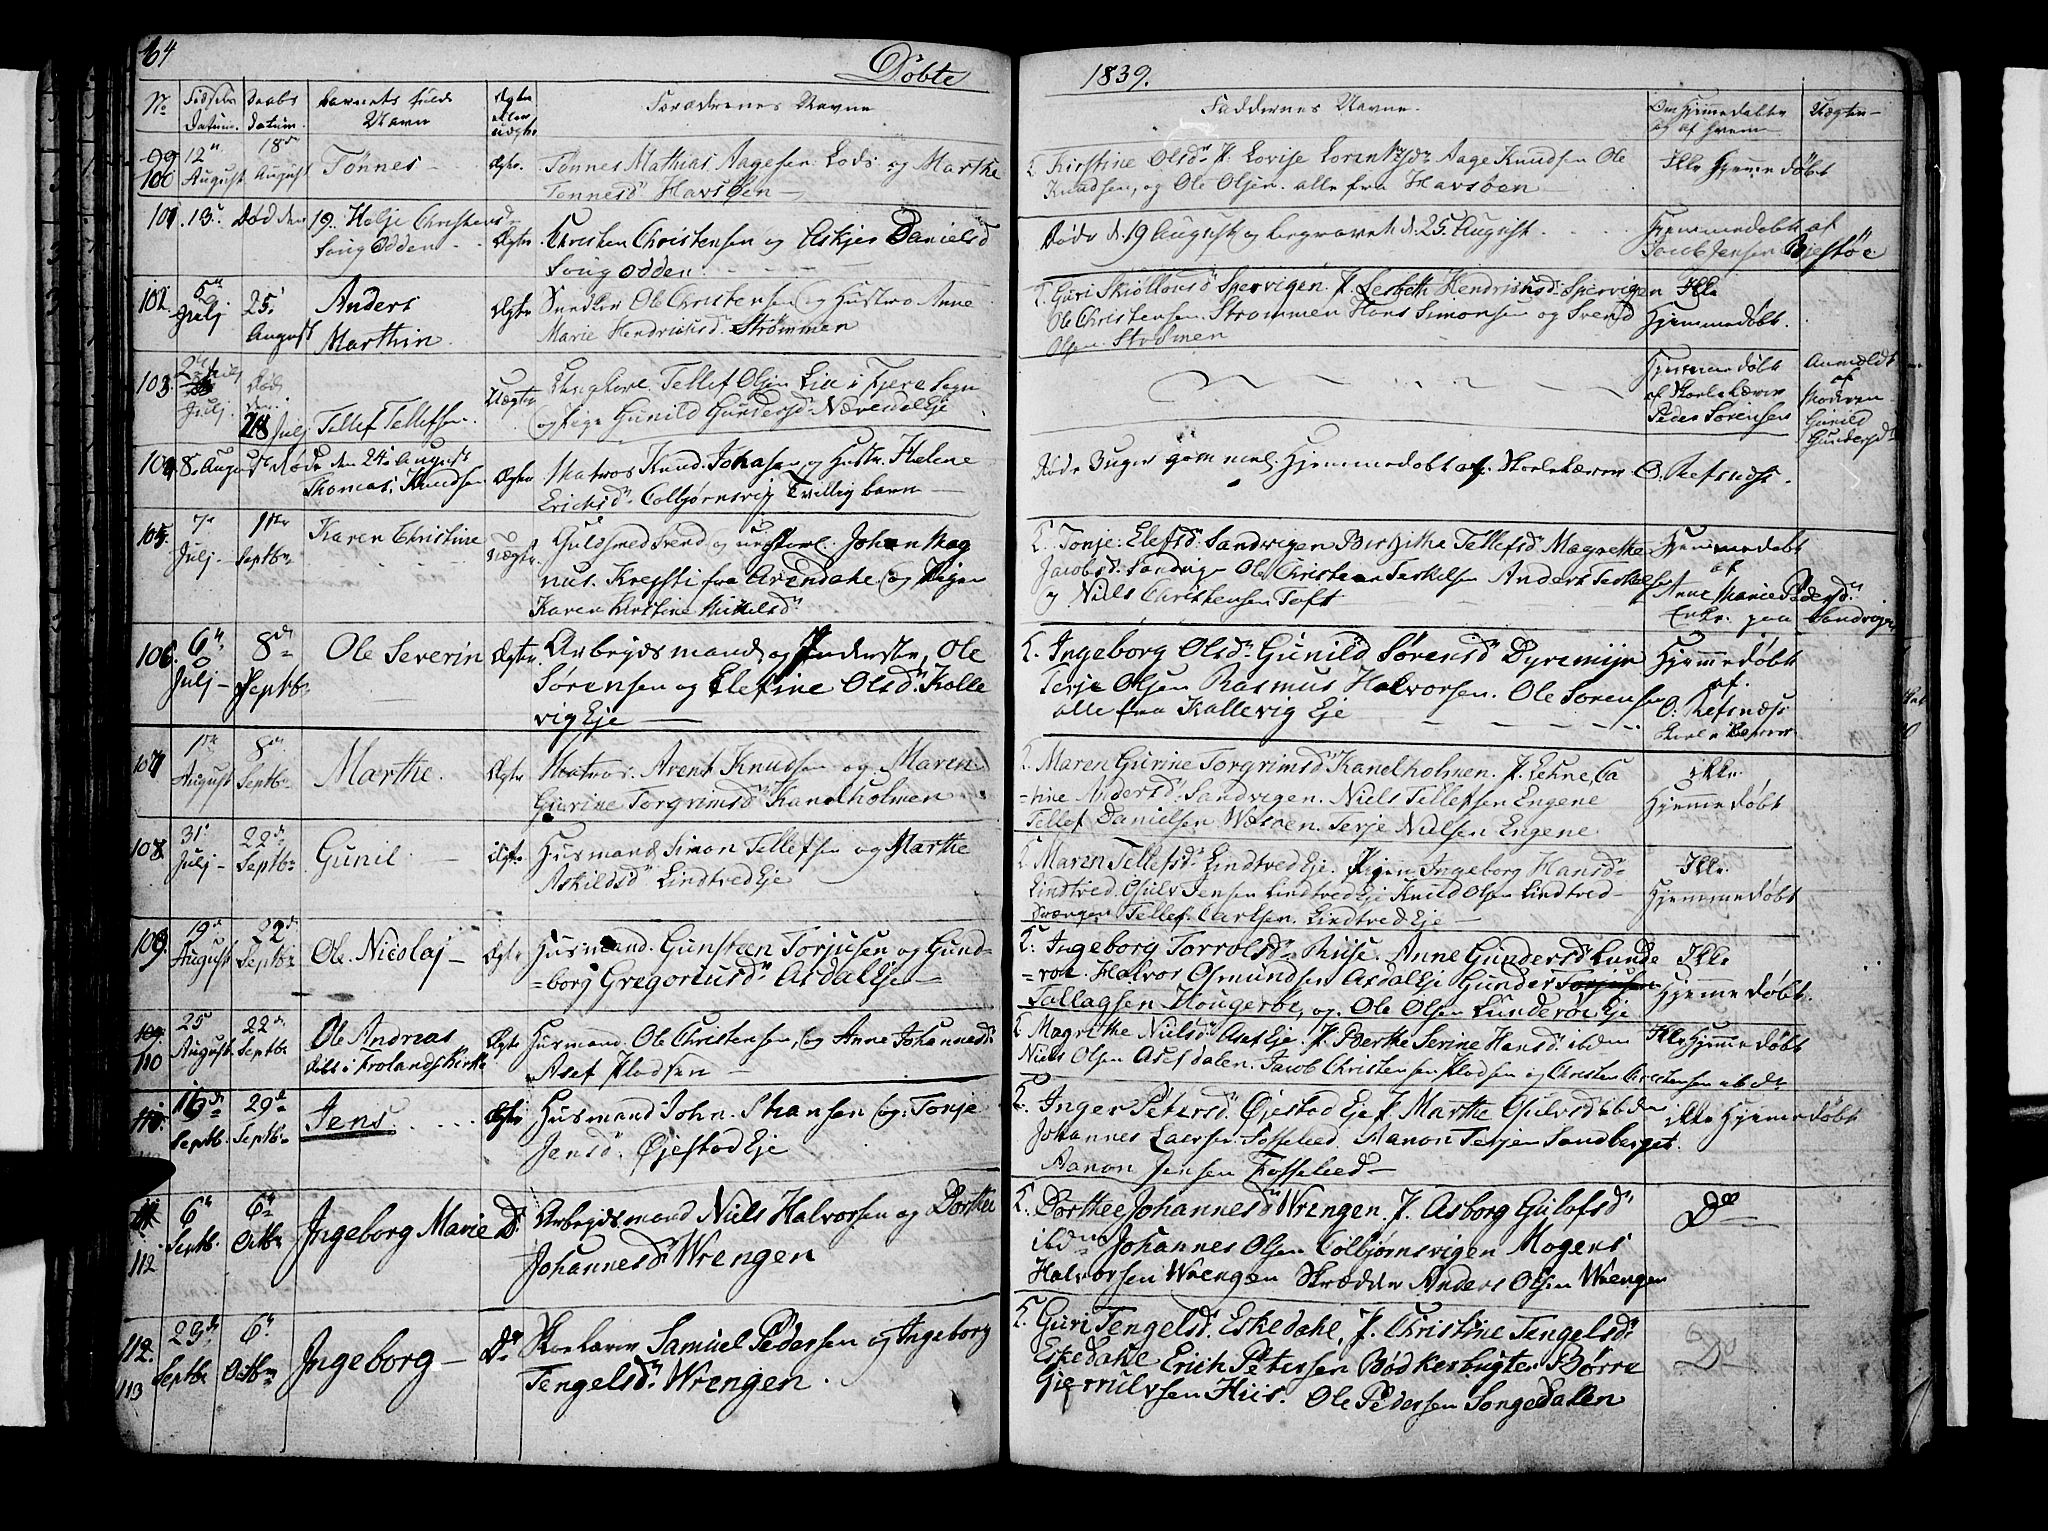 64
Døbte
1839.
No
Fødsels Datum.
Daabs Datum.
Barnets fulde Navn
Ægte eller uægte
Forældrenes Navne
Faddernes Navne.
Om Hjemmedøbt og af hvem
99
100
12
August
18de
August
Tønnes
Ægte.
Tønnes Mathias Aagesen Lods og Marthe
Tønnesd Havsøen
Kirstine Olsd. P. Lovise Lorentzsd. Aage Knudsen Ole
Knudsen, og Ole Olsen. alle fra Havsøen
Ikke Hjemmedøbt
101
13.
Død den
19. Helje Christensd
Songodden
Ægte
Christen Christensen og Askjer Danielsd
Songodden.
Døde d. 19 August og begravet d. 25. August.
Hjemmedøbt af
Jacob Jensen
102.
Julj
25
August
Anders
Marthin.
Ægte
Ole Christensen og Hustro Anne
Marie Hendriksd. Strømmen
Guri Skiollousd Spervigen. P. Lesbeth Hendriksd. Spervigen
Ole Christensen Strømmen Hans Simonsen og Svend
Olsen.
Ikke
Hjemmedøbt.
103
Julj.
Død
den
28 Julj
Tellef Tellefsen
Uægte
Ungkarl Tellef Olsen Lie i Fjere Sogn
og Pige Gunild Gundersd. Nærendal Eje
Hjemmedøbt
af Skolelærer
Peder Sørensen
Anmeldt
af
Moderen
Gunild
Gundersd
104
8. August
Døde den 24. August
Thomas Knudsen
Ægte
Matros Knud Johnsen og Hustr. Helene
Ericksd. Colbjørnsvig Tvilling barn
Døde 3 uger gammel. Hjemmedøbt af Skolelærer O. Refsnæs.
105
7de
Julj
1ste
Septbr
Karen Christine
Uægte.
Guldsmed Svend og ungkarl. Johan Mag
nus. Krefsti fra Arendahl og Pigen
Karen Kirstine Nielsd
Tonje Elefsd. Sandvigen Birgithe Tellefsd Magrethe
Jacobsd. Sandvigen Ole Christian Terkelsen Anders Terkelsen
og Niels Christensen Toft
Hjemmedøbt
af
Anne Marie Pedersd.
Enke paa Sandvigen
106.
6
Julj
8de
Septbr
Ole Severin
Ægte.
Arbeydsmand og Inderste, Ole
Sørensen og Elefine Olsd. Kolle
vig Eje
Ingeborg Olsd. Gunild Sørensd. Dyremijr
Terje Olsen Rasmus Halvorsen. Ole Sorensen
alle fra Kallevig Eje
Hjemmedøbt
af.
O: Refsnæs
Skolelærer
107
1ste
August
8de
Septbr
Marthe.
Ægte
Matros. Arent Knudsen og Maren
Gurine Torgrimsd Kanelholmen
Maren Gurine Torgrimsd Kanelholmen. P. Lehne, Ca
=tine Andersd. Sandvigen. Niels Tellefsen Engene
Tellef Danielsen Wæsøen. Terje Nielsen Engene
ikke
Hjemmedøbt
108
31
Julj
22de
Septbr
Gunil
Ægte
Husmand Simon Tellefsen og Marthe
Askildsd Lindtved Eje
Maren Tellefsd. Lindtved Eje. Pigen Ingeborg Hansd.
Lindtved. Gjulv Jensen Lindtved Eje Knud Olsen Lindtved
Tellef Carlsen. Lindtved Eje
Ikke
Hjemmedøbt
109.
19de
August
22de
Septbr
Ole. Nicolaj
Ægte
Husmand. Gunsteen Torjusen og Gund-
=borg Gregoriusd. Asdal Eje
Ingeborg Tarrolsd. Riise. Anne Gundersd Lunde
=roe. Halvor Osmundsen Asdal Eje Gunder Torjusen
Tallagsen Hougeroe, og Ole Olsen Lunderøe Eje
Ikke
Hjemmedøbt.
109.
110
25
August
22de
Septbr
Ole Andreas
døbt i Frolands Kirke
Ægte
Husmand. Ole Christensen, og Anne Johannesd
Asef Pladsen
Magrethe Nielsd. Asef Eje. P. Berthe Serine Hansd. ibden
Niels Olsen Asefdalen. Jacob Christensen Pladsen og Christen Christensen ibden
Ikke Hjemmedøbt
110.
16de
Septb.
29de
Septbr
Jens
Ægte
Husmand John. Skansen og: Tonje
Jensd. Øjestad Eje
Inger Petersd. Øjestad Eje P. Marthe Gjulvsd ibden
Johannes Laersen Fosselied. Manon Terjen Sandberget.
Aanon Jensen Fosselied
ikke Hjemmedøbt
112
6
Septb.
6
Octbr
Ingeborg Marie
Do
Arbeydsmand Niels Halvorsen og Dorthee
Johannesd. Wrengen
Dorthee Johannesd. Wrengen. P. Asborg Gulofsd
ibden Johannes Olsen Colbjørnsvigen Mogens
Halvorsen Wrengen Skrædder Anders Olsen Wrengen
Do
112.
113
23de
Septbr
6
Octbr
Ingeborg
Do
Skolelærer Samuel Pedersen og Ingeborg
Tengelsd. Wrengen.
Guri Tengelsd. Eskedahl, P. Christine Tengelsd.
Eskedahl Erich Petersen Bødkerbugten Børre
Gjerrulvsen Hiis. Ole Pedersen Songedalen
Do